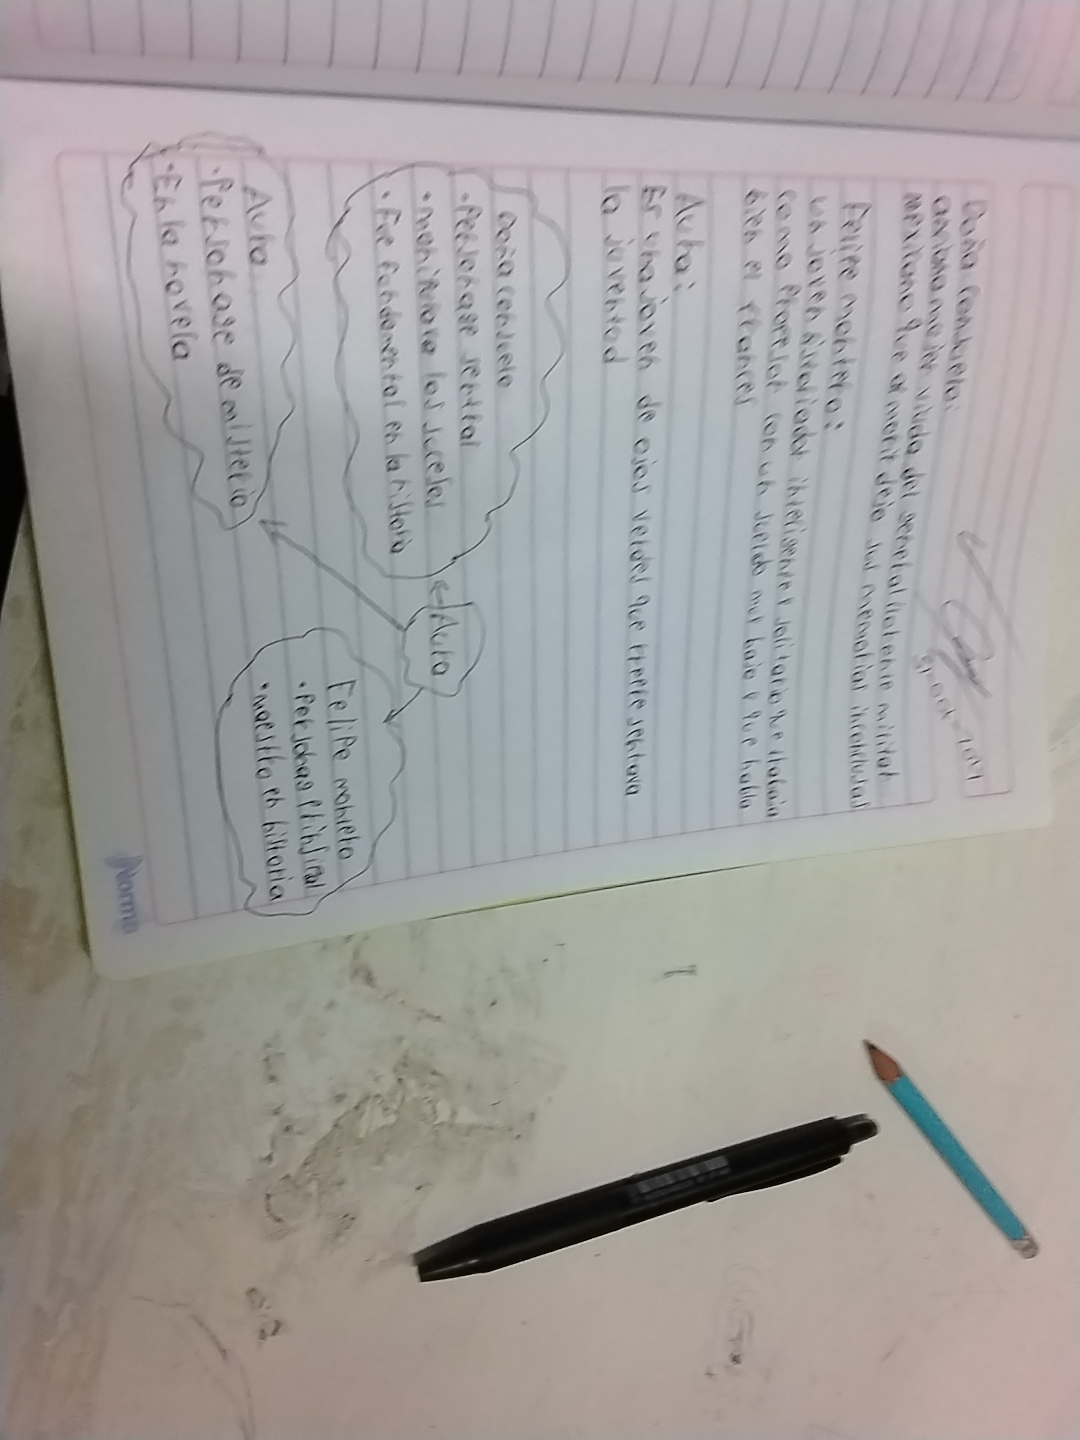 Doña Consuelo:
anciana mujer viuda del general Llorente militar
mexicano que al morir dejo sus memorias inconclusas
Felipe montero:
un joven historiador inteligente y solitario que trabaja
como Profesor con un sueldo muy bajo y que habla
bien el frances
Aura:
Es una joven de ojos verdes que
la juventud
Doña Consuelo
• Personage sentral
• los sucesos
• Fue fundamental en la historia
Aura
Aura
• Personage de misterio
• En la novela
Felipe montero
• Personag Prinsipal
• maestro en historia
Norma